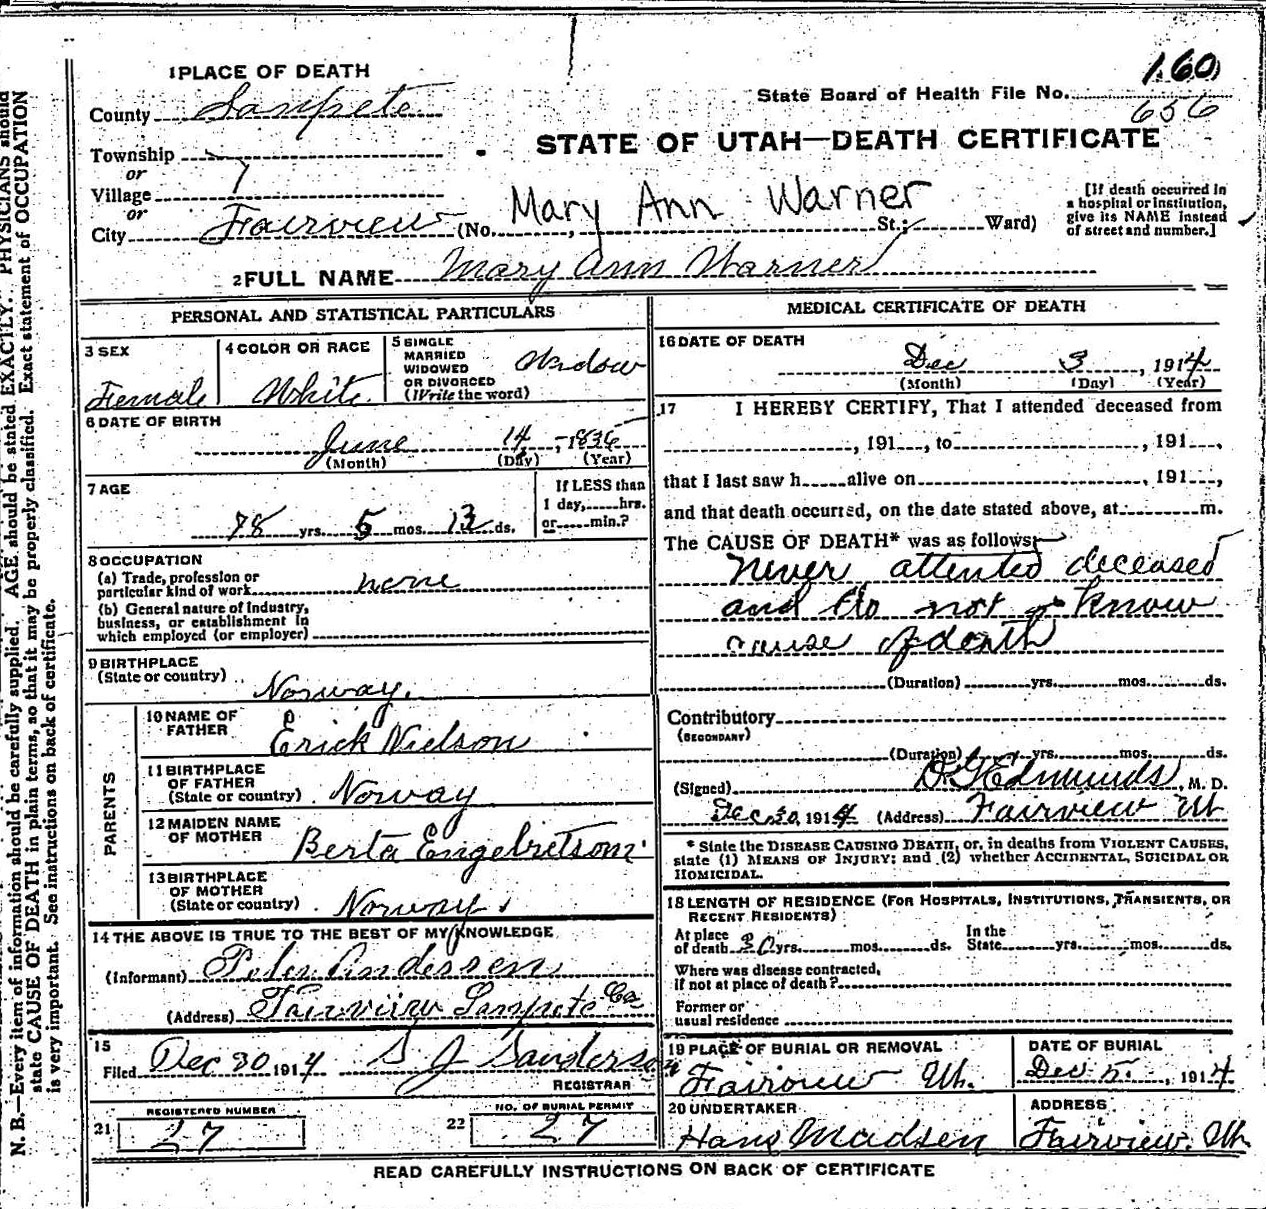 160
State Board of Health File No. 656
STATE OF UTAH—DEATH CERTIFICATE
1 PLACE OF DEATH
County Sanpete
Township
or
Village
or
City Fairview (No. , Mary Ann Warner St.; Ward)
[If death occurred in a hospital or institution, give its NAME instead of street and number.]
2 FULL NAME Mary Ann Warner
PERSONAL AND STATISTICAL PARTICULARS
3 SEX
Female
4 COLOR OR RACE
White
5 SINGLE MARRIED WIDOWED OR DIVORCED (Write the word)
Widow
6 DATE OF BIRTH
June 14, 1836
(Month) (Day) (Year)
7 AGE
78 yrs. 5 mos. 13 ds.
If LESS than 1 day, hrs. or min.?
8 OCCUPATION
(a) Trade, profession or particular kind of work none
(b) General nature of industry, business, or establishment in which employed (or employer)
9 BIRTHPLACE
(State or country)
Norway.
PARENTS
10 NAME OF FATHER Erick Nielson
11 BIRTHPLACE OF FATHER (State or country) Norway
12 MAIDEN NAME OF MOTHER Berta Engelretsom
13 BIRTHPLACE OF MOTHER (State or country) Norway.
14 THE ABOVE IS TRUE TO THE BEST OF MY KNOWLEDGE
(Informant) Peter Anderson
(Address) Fairview Sanpete Co
15
Filed Dec 30 1914 S J Sanderson
REGISTRAR
21 REGISTERED NUMBER
27
22 NO. OF BURIAL PERMIT
27
MEDICAL CERTIFICATE OF DEATH
16 DATE OF DEATH
Dec 3, 1914
(Month) (Day) (Year)
17 I HEREBY CERTIFY, That I attended deceased from
, 191 , to , 191 ,
that I last saw h alive on , 191 ,
and that death occurred, on the date stated above, at m.
The CAUSE OF DEATH* was as follows:
Never attented deceased
and do not know
cause of death
(Duration) yrs. mos. ds.
Contributory
(SECONDARY)
(Duration) yrs. mos. ds.
(Signed) Edmunds, M. D.
Dec 30, 1914 (Address) Fairview Ut
* State the DISEASE CAUSING DEATH, or, in deaths from VIOLENT CAUSES,
state (1) MEANS OF INJURY; and (2) whether ACCIDENTAL, SUICIDAL OR
HOMICIDAL.
18 LENGTH OF RESIDENCE (FOR HOSPITALS, INSTITUTIONS, TRANSIENTS, OR
RECENT RESIDENTS)
At place of death 30 yrs. mos. ds. In the State yrs. mos. ds.
Where was disease contracted,
if not at place of death?
Former or
usual residence
19 PLACE OF BURIAL OR REMOVAL
Fairview Ut.
DATE OF BURIAL
Dec 5, 1914
20 UNDERTAKER
Hans Madsen
ADDRESS
Fairview. Ut
READ CAREFULLY INSTRUCTIONS ON BACK OF CERTIFICATE
N. B.—Every item of information should be carefully supplied. AGE should be stated EXACTLY. PHYSICIANS should
state CAUSE OF DEATH in plain terms, so that it may be properly classified. Exact statement of OCCUPATION
is very important. See instructions on back of certificate.